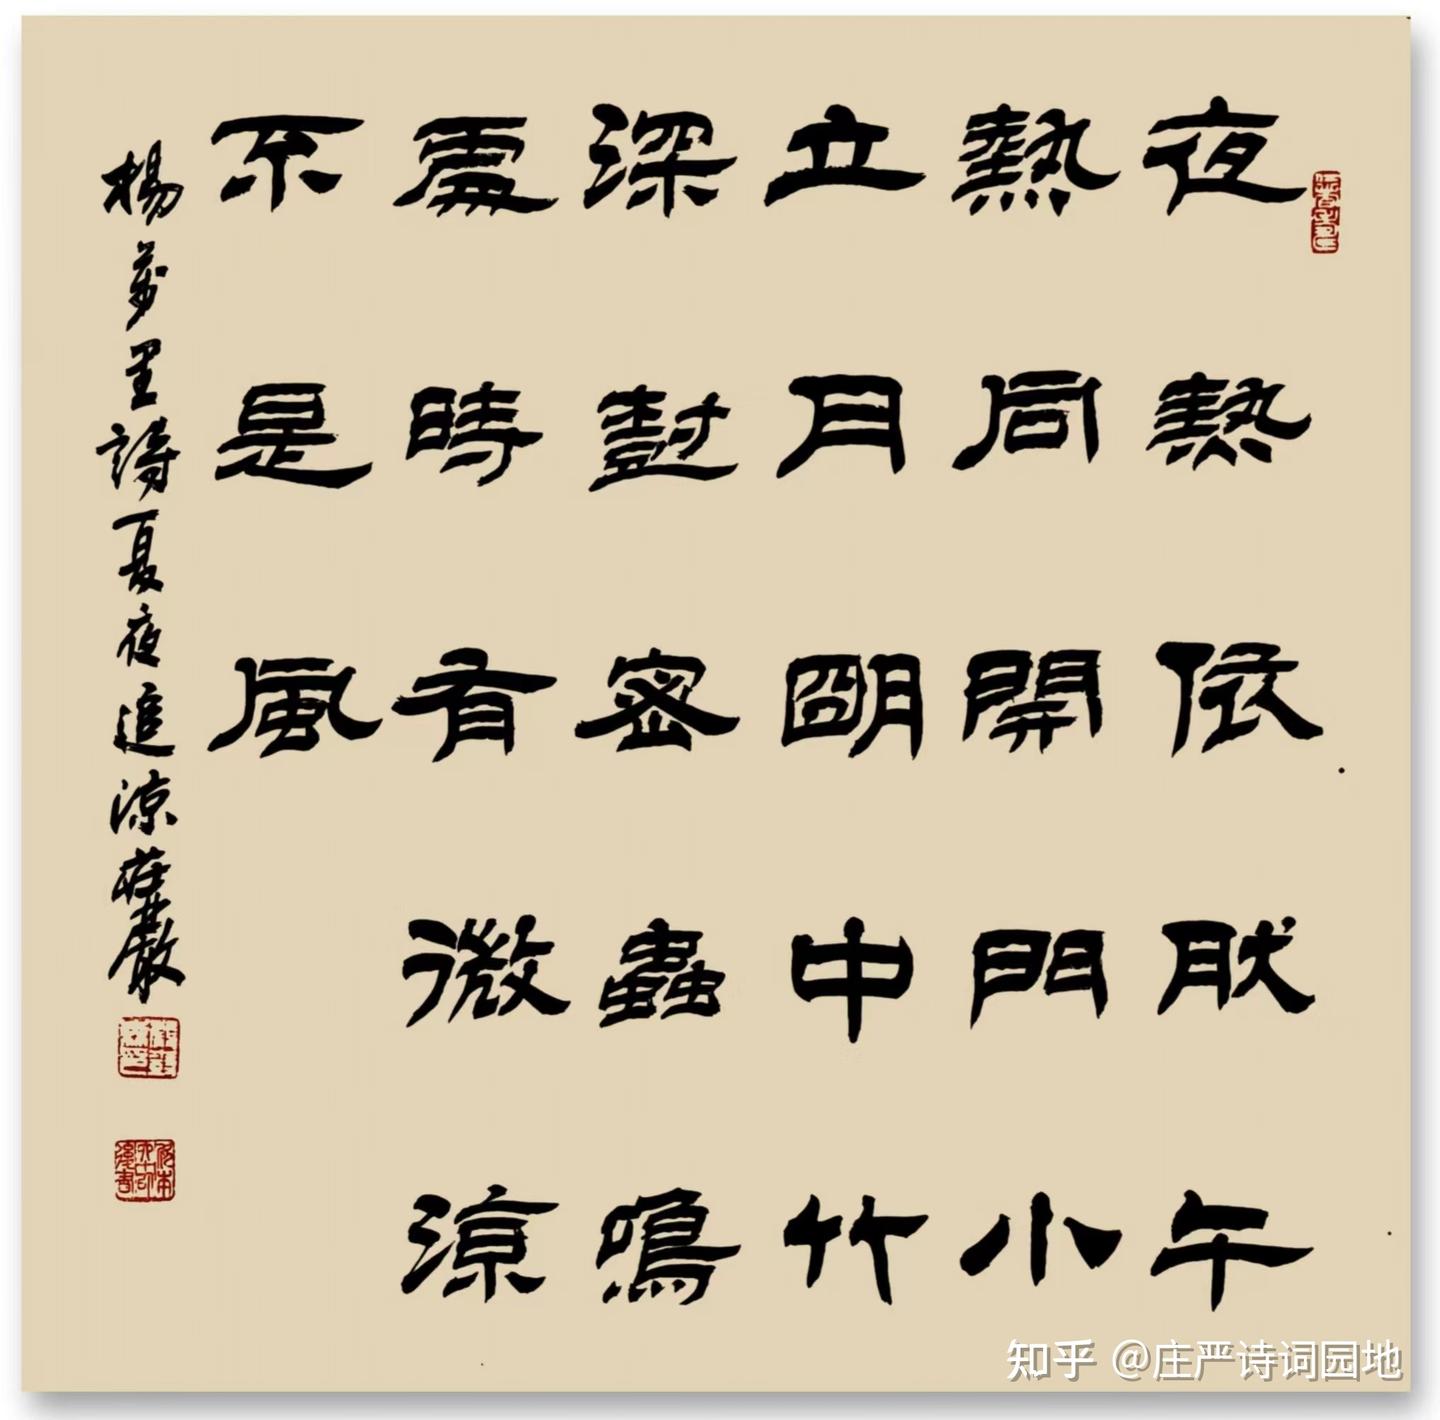 夜熱依肰午
熱同開門小
立月朙中竹
深尌密蟲鳴
處時有微涼
不是風
楊萬里詩夏夜追涼莊嚴
知乎 @庄严诗词园地